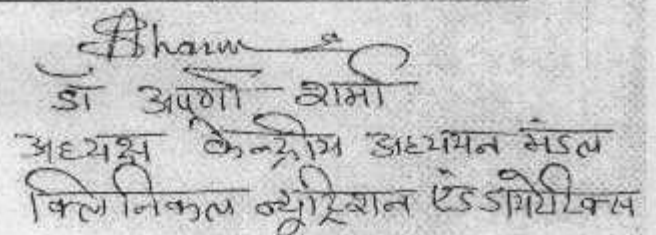 Sharma
डॉ अपर्णा शर्मा
अध्यक्ष केन्द्रीय अध्ययन मंडल
क्लिनिकल न्यूट्रिशन एंड डायटेटिक्स